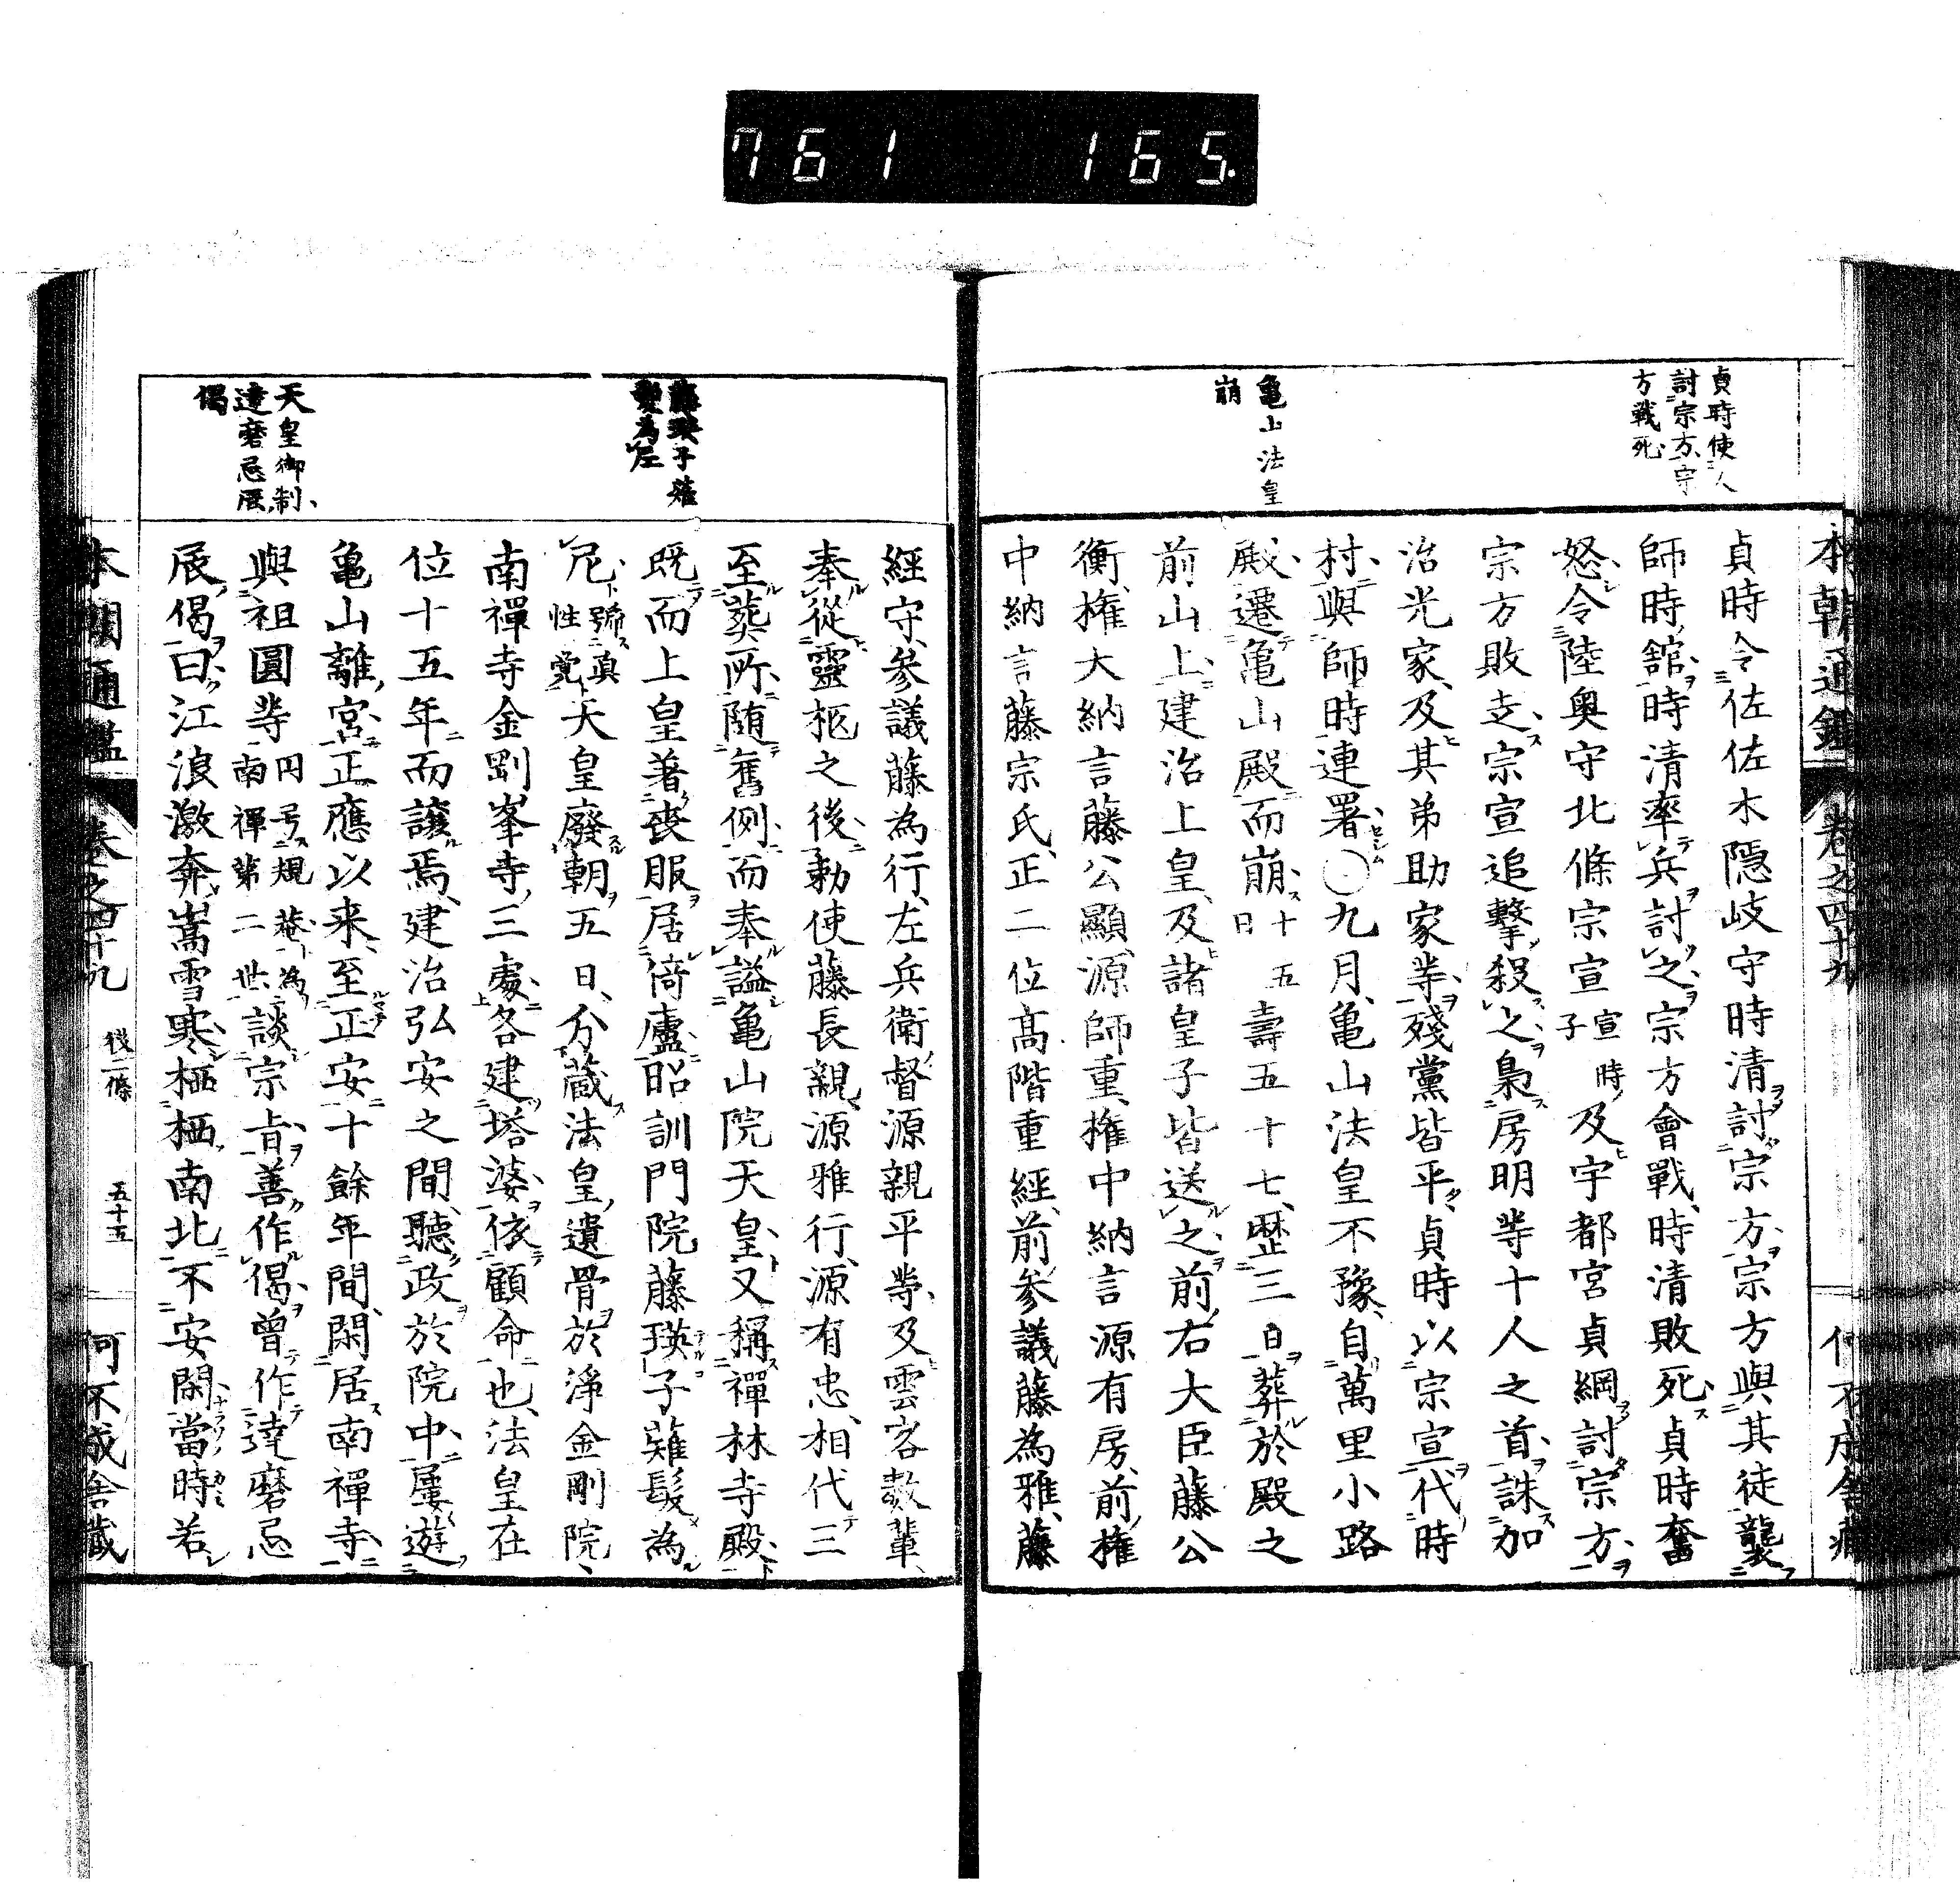 761 165.
本朝通鑑 卷之四十九
貞時使人
討宗方守
方戰死
貞時令佐佐木隱岐守時清討宗方宗方與其徒襲
師時舘時清率兵討之宗方會戰時清敗死貞時奮
怒令陸奥守北條宗宣宣時子及宇都宮貞綱討宗方
宗方敗走宗宣追擊殺之梟房明等十人之首誅加
治光家及其弟助家等殘黨皆平貞時以宗宣代時
村與師時連署○九月亀山法皇不豫自萬里小路
亀山法皇
崩
殿遷亀山殿而崩十五日壽五十七歷三日葬於殿之
前山上建治上皇及諸皇子皆送之前右大臣藤公
衡權大納言藤公顯源師重權中納言源有房前權
中納言藤宗氏正二位髙階重經前參議藤為雅藤
經守參議藤為行左兵衛督源親平等及雲客數輩
奉從靈柩之後勅使藤長親源雅行源有忠相代三
至葬所随舊例而奉謚亀山院天皇又稱禪林寺殿
藤瑛子薙
髮為尼
既而上皇著喪服居倚廬昭訓門院藤瑛子薙髮為
尼號真性覺天皇廢朝五日分蔵法皇遺骨於淨金剛院
南禪寺金剛峯寺三處各建塔婆依顧命也法皇在
位十五年而讓焉建治弘安之間聽政於院中屢遊
亀山離宮正應以来至正安十餘年間閑居南禪寺
天皇御制
達磨忌辰
偈
與祖圓等円号規菴為南禪第二世談宗旨善作偈曾作達磨忌
辰偈曰江浪激奔嵩雪寒栖栖南北不安閑當時若
本朝通鑑 卷之四十九 後二條 五十五 何不成舎蔵